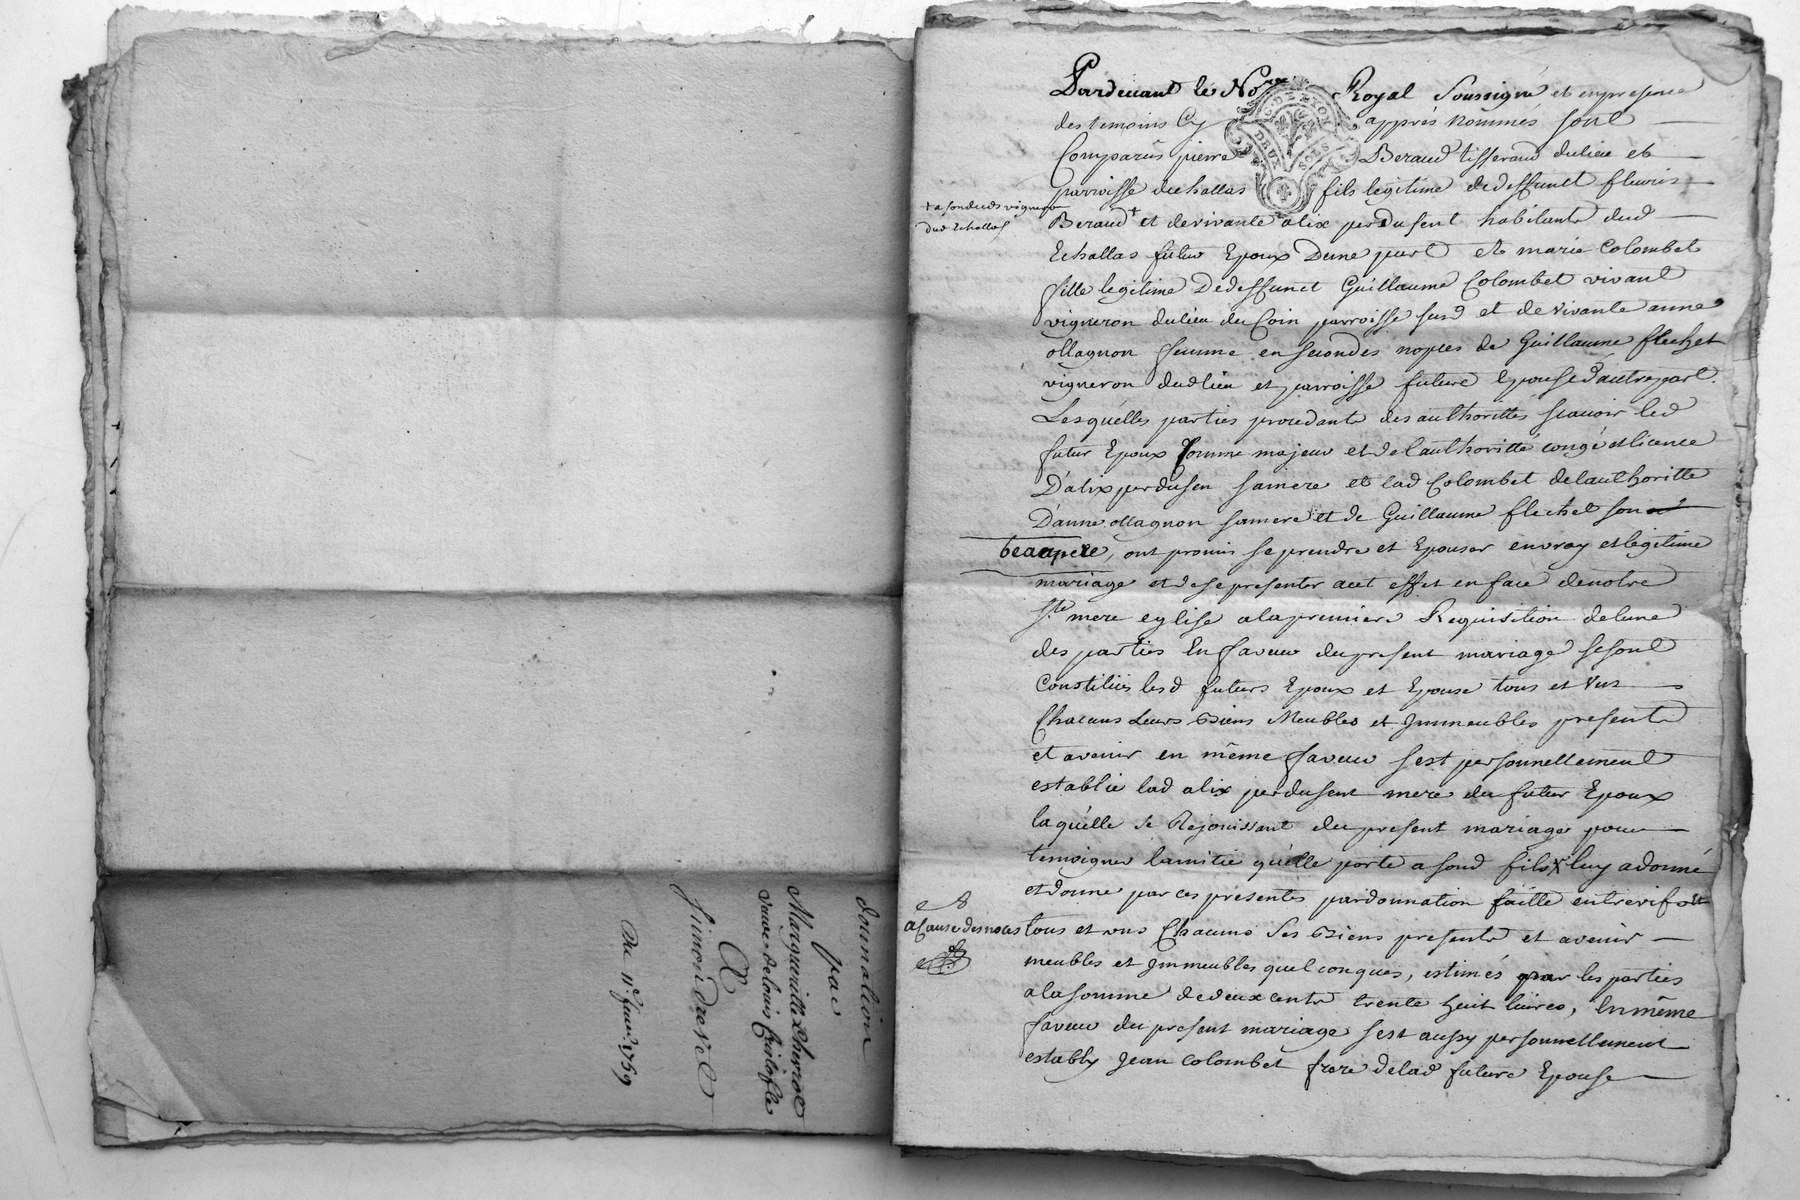 donnation
par
Margueritte Chirat
veuve de louis
A
Simon drevet
Du 11e janvr 1769
Pardevant le Nore Royal Soussigné et en presence
G. DE LYON
DEUX SOLS
des temoins Cy appres nommés sont
Comparûs pierre Beraud tisserand du lieu et
parroisse dechallas fils legitime de deffunct fleuris
Beraud + et de vivante alix perdusent habitants dud
+ a son deceds vigneron
dud Echallas
Echallas futur Epoux Dune part et marie Colombet
fille legitime De deffunct Guillaume Colombet vivant
vigneron du lieu du Coin parroisse susd et de vivante anne
ollagnon femme en secondes nopces de Guillaume flechet
vigneron dud lieu et parroisse future Epouse d'autre part.
Lesquélles parties procedants des authorittés scavoir led
futur Epoux Comme majeur et de l'authoritté congé et licence
D'alix perdusen sa mere et lad Colombet de lauthoritte
D'anne ollagnon sa mere et de Guillaume flechet son
beaupere, ont promis se prendre et Epouser en vray et legitime
mariage et de se presenter a cet effet en face de notre
Ste mere eglise a la premiere Requisition de lune
des parties En faveur du present mariage se sont
Constitués lesd futurs Epoux et Epouse tous et Uns
Chacuns Leurs Biens Meubles et Immeubles presents
et avenir en même faveur s'est personnellement
establie lad alix perdusent mere du futur Epoux
laquélle se Rejouissant du present mariage pour
temoigner lamitié quélle porte a sond fils luy a donné
et donne par ces presentes par donnation faitte entre vifs et
a Cause des noces
tous et uns Chacuns Ses Biens presents et avenir
meubles et Immeubles quelconques, estimés par les parties
a la somme de deux cents trente huit livres, En même
faveur du present mariage s'est aussy personnellement
estably Jean Colombet frere de lad future Epouse